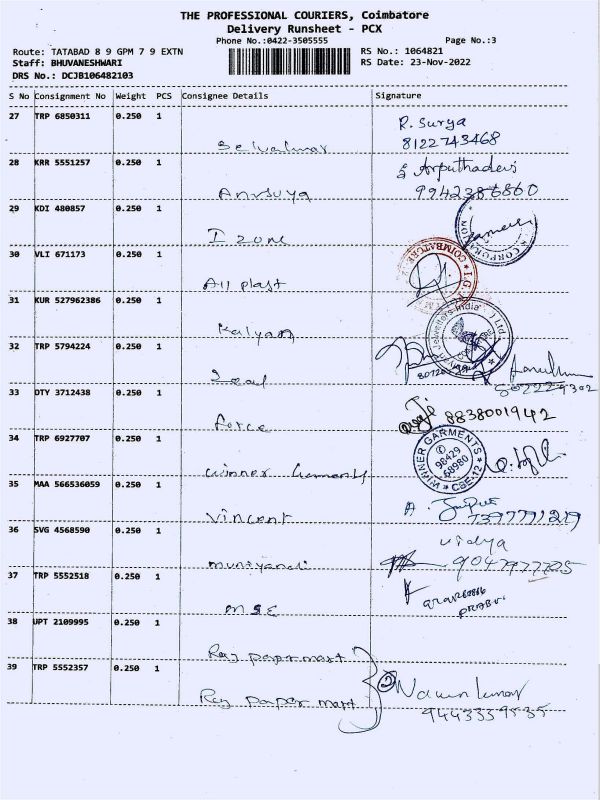 THE PROFESSIONAL COURIERS, Coimbatore
Delivery Runsheet - PCX
Phone No.:0422-3505555 Page No.:3
Route: TATABAD 8 9 GPM 7 9 EXTN RS No.: 1064821
Staff: BHUVANESHWARI RS Date: 23-Nov-2022
DRS No.: DCJB106482103
S No Consignment No Weight PCS Consignee Details Signature
27 TRP 6850311 0.250 1 R. Surya
8122743468
28 KRR 5551257 0.250 1 Arputhadevi
Anusuya 9942386860
29 KDI 480857 0.250 1
I zone
30 VLI 671173 0.250 1 COIMBATORE
All plast
31 KUR 527962386 0.250 1 Jewellers India
Kalyan
32 TRP 5794224 0.250 1
Zeal
33 DTY 3712438 0.250 1
force 8838001942
34 TRP 6927707 0.250 1 WINNER GARMENTS
98429
68980
CBE-12
winner
35 MAA 566536059 0.250 1
Vincent 7397791219
36 SVG 4568590 0.250 1 vidya
muniyandi
37 TRP 5552518 0.250 1
MSE
38 UPT 2109995 0.250 1
Raj paper mart
39 TRP 5552357 0.250 1
Raj paper mart Navin kumar